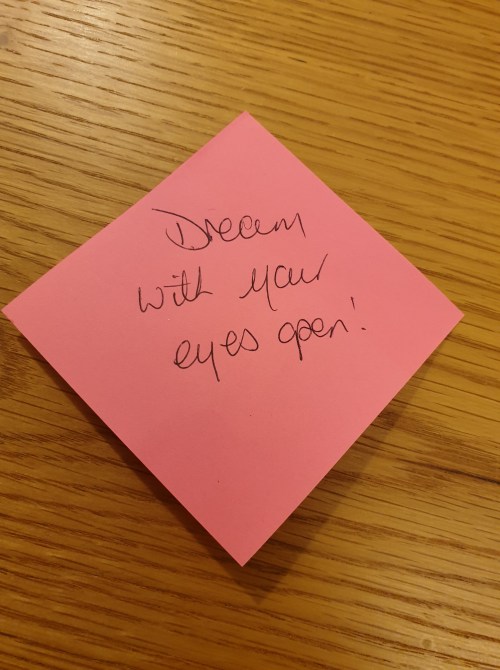 Dream
with your
eyes open!